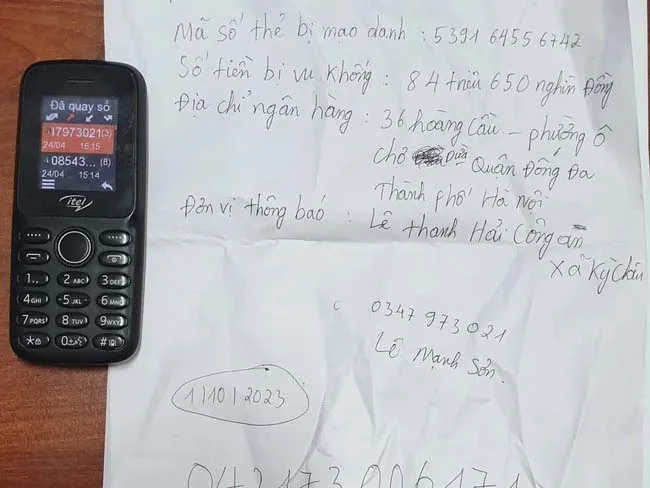 Mã số thẻ bị mạo danh : 5391 6455 6742
Số tiền bị vu khống : 84 triệu 650 nghìn Đồng
Địa chỉ ngân hàng : 36 hoàng Cầu - phường ô
chợ Dừa Quân Đống Đa
Thành phố Hà Nôi
Đơn vị thông báo : Lê thanh Hải Công an
xã Kỳ Châu
0347 973 021
Lê Mạnh Sơn.
1|10|2023
Đã quay số
47973021(3)
24/04 15:15
08543...(8)
24/04 15:14
itel
1
2 ABC
3 DEF
4 GHI
5 JKL
6 MNO
7 PQRS
8 TUV
9 WXYZ
*
0
#